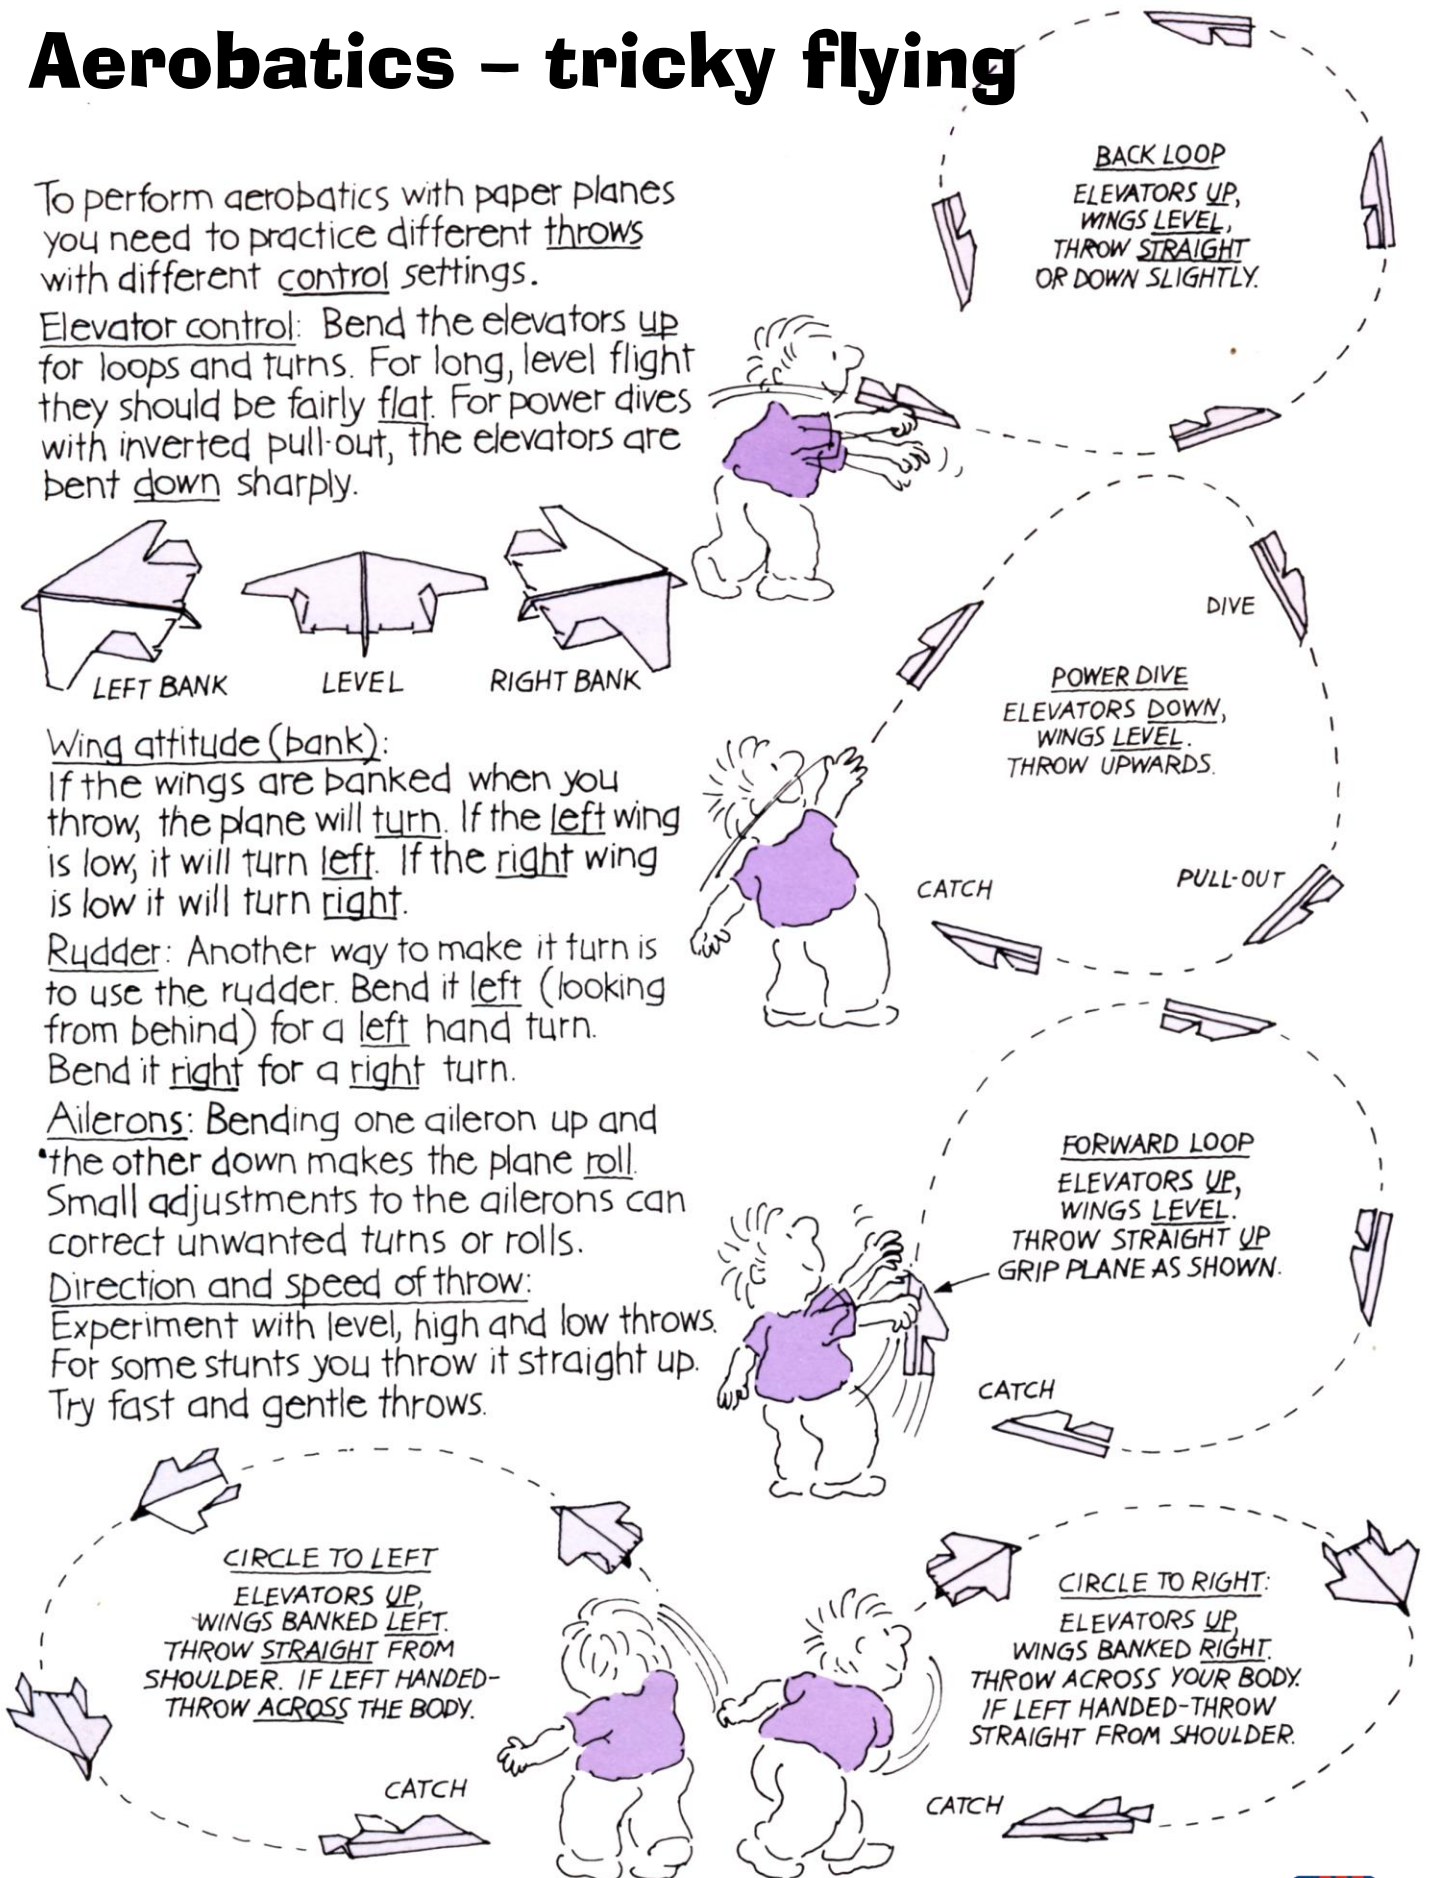 Aerobatics – tricky flying
To perform aerobatics with paper planes
you need to practice different throws
with different control settings.
Elevator control: Bend the elevators up
for loops and turns. For long, level flight
they should be fairly flat. For power dives
with inverted pull-out, the elevators are
bent down sharply.
LEFT BANK
LEVEL
RIGHT BANK
Wing attitude (bank):
If the wings are banked when you
throw, the plane will turn. If the left wing
is low, it will turn left. If the right wing
is low it will turn right.
Rudder: Another way to make it turn is
to use the rudder. Bend it left (looking
from behind) for a left hand turn.
Bend it right for a right turn.
Ailerons: Bending one aileron up and
the other down makes the plane roll.
Small adjustments to the ailerons can
correct unwanted turns or rolls.
Direction and speed of throw:
Experiment with level, high and low throws.
For some stunts you throw it straight up.
Try fast and gentle throws.
BACK LOOP
ELEVATORS UP,
WINGS LEVEL,
THROW STRAIGHT
OR DOWN SLIGHTLY.
DIVE
POWER DIVE
ELEVATORS DOWN,
WINGS LEVEL.
THROW UPWARDS.
PULL-OUT
CATCH
FORWARD LOOP
ELEVATORS UP,
WINGS LEVEL.
THROW STRAIGHT UP
GRIP PLANE AS SHOWN.
CATCH
CIRCLE TO LEFT
ELEVATORS UP,
WINGS BANKED LEFT.
THROW STRAIGHT FROM
SHOULDER. IF LEFT HANDED-
THROW ACROSS THE BODY.
CATCH
CIRCLE TO RIGHT:
ELEVATORS UP,
WINGS BANKED RIGHT.
THROW ACROSS YOUR BODY.
IF LEFT HANDED-THROW
STRAIGHT FROM SHOULDER.
CATCH